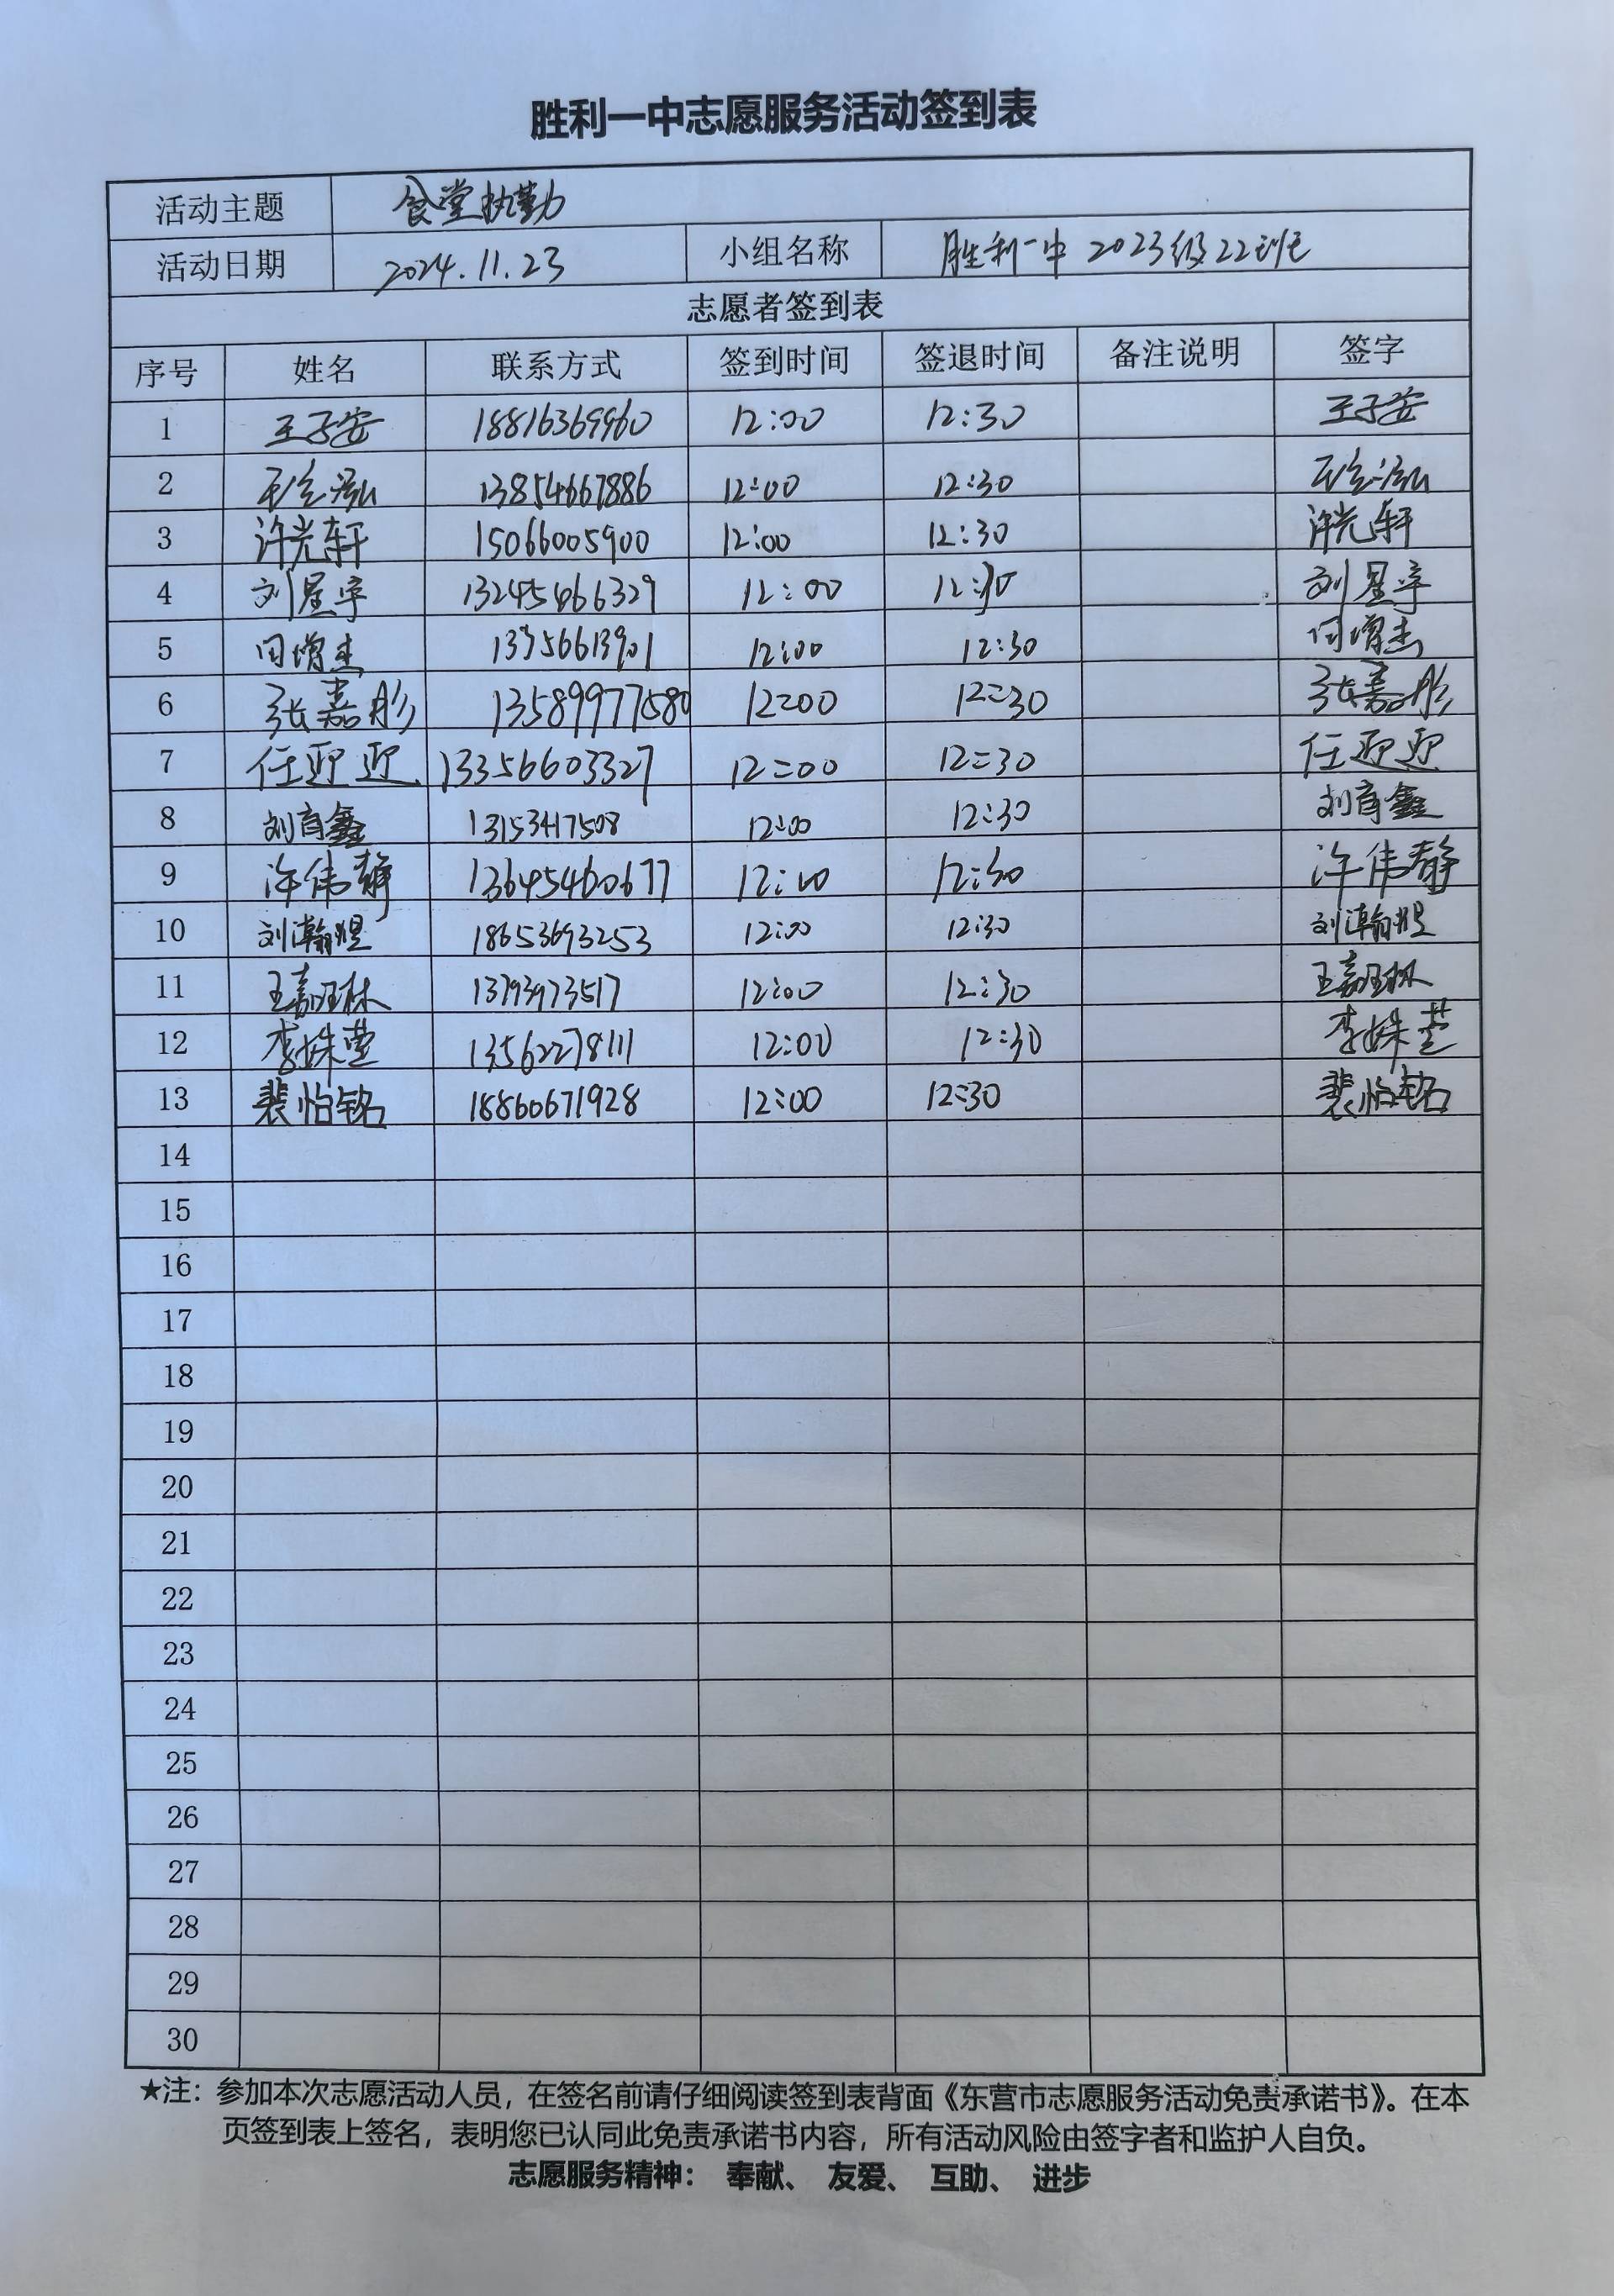 胜利一中志愿服务活动签到表
活动主题 食堂执勤
活动日期 2024.11.23 小组名称 胜利一中 2023级22班
志愿者签到表
序号 姓名 联系方式 签到时间 签退时间 备注说明 签字
1 王子安 18816369960 12:00 12:30 王子安
2 13854667886 12:00 12:30
3 许光轩 15066005900 12:00 12:30 许光轩
4 刘星宇 13245466329 12:00 12:30 刘星宇
5 田增杰 12:00 12:30 田增杰
6 张嘉彤 13589977580 12:00 12:30 张嘉彤
7 任迎迎 13356603327 12:00 12:30 任迎迎
8 刘育鑫 13153417508 12:00 12:30 刘育鑫
9 许伟静 13645460677 12:00 12:30 许伟静
10 刘瀚煜 18653693253 12:00 12:30 刘瀚煜
11 王嘉琳 13793973517 12:00 12:30 王嘉琳
12 李姝萱 13562278111 12:00 12:30 李姝萱
13 裴怡铭 18860671928 12:00 12:30 裴怡铭
14
15
16
17
18
19
20
21
22
23
24
25
26
27
28
29
30
★注：参加本次志愿活动人员，在签名前请仔细阅读签到表背面《东营市志愿服务活动免责承诺书》。在本
页签到表上签名，表明您已认同此免责承诺书内容，所有活动风险由签字者和监护人自负。
志愿服务精神： 奉献、 友爱、 互助、 进步